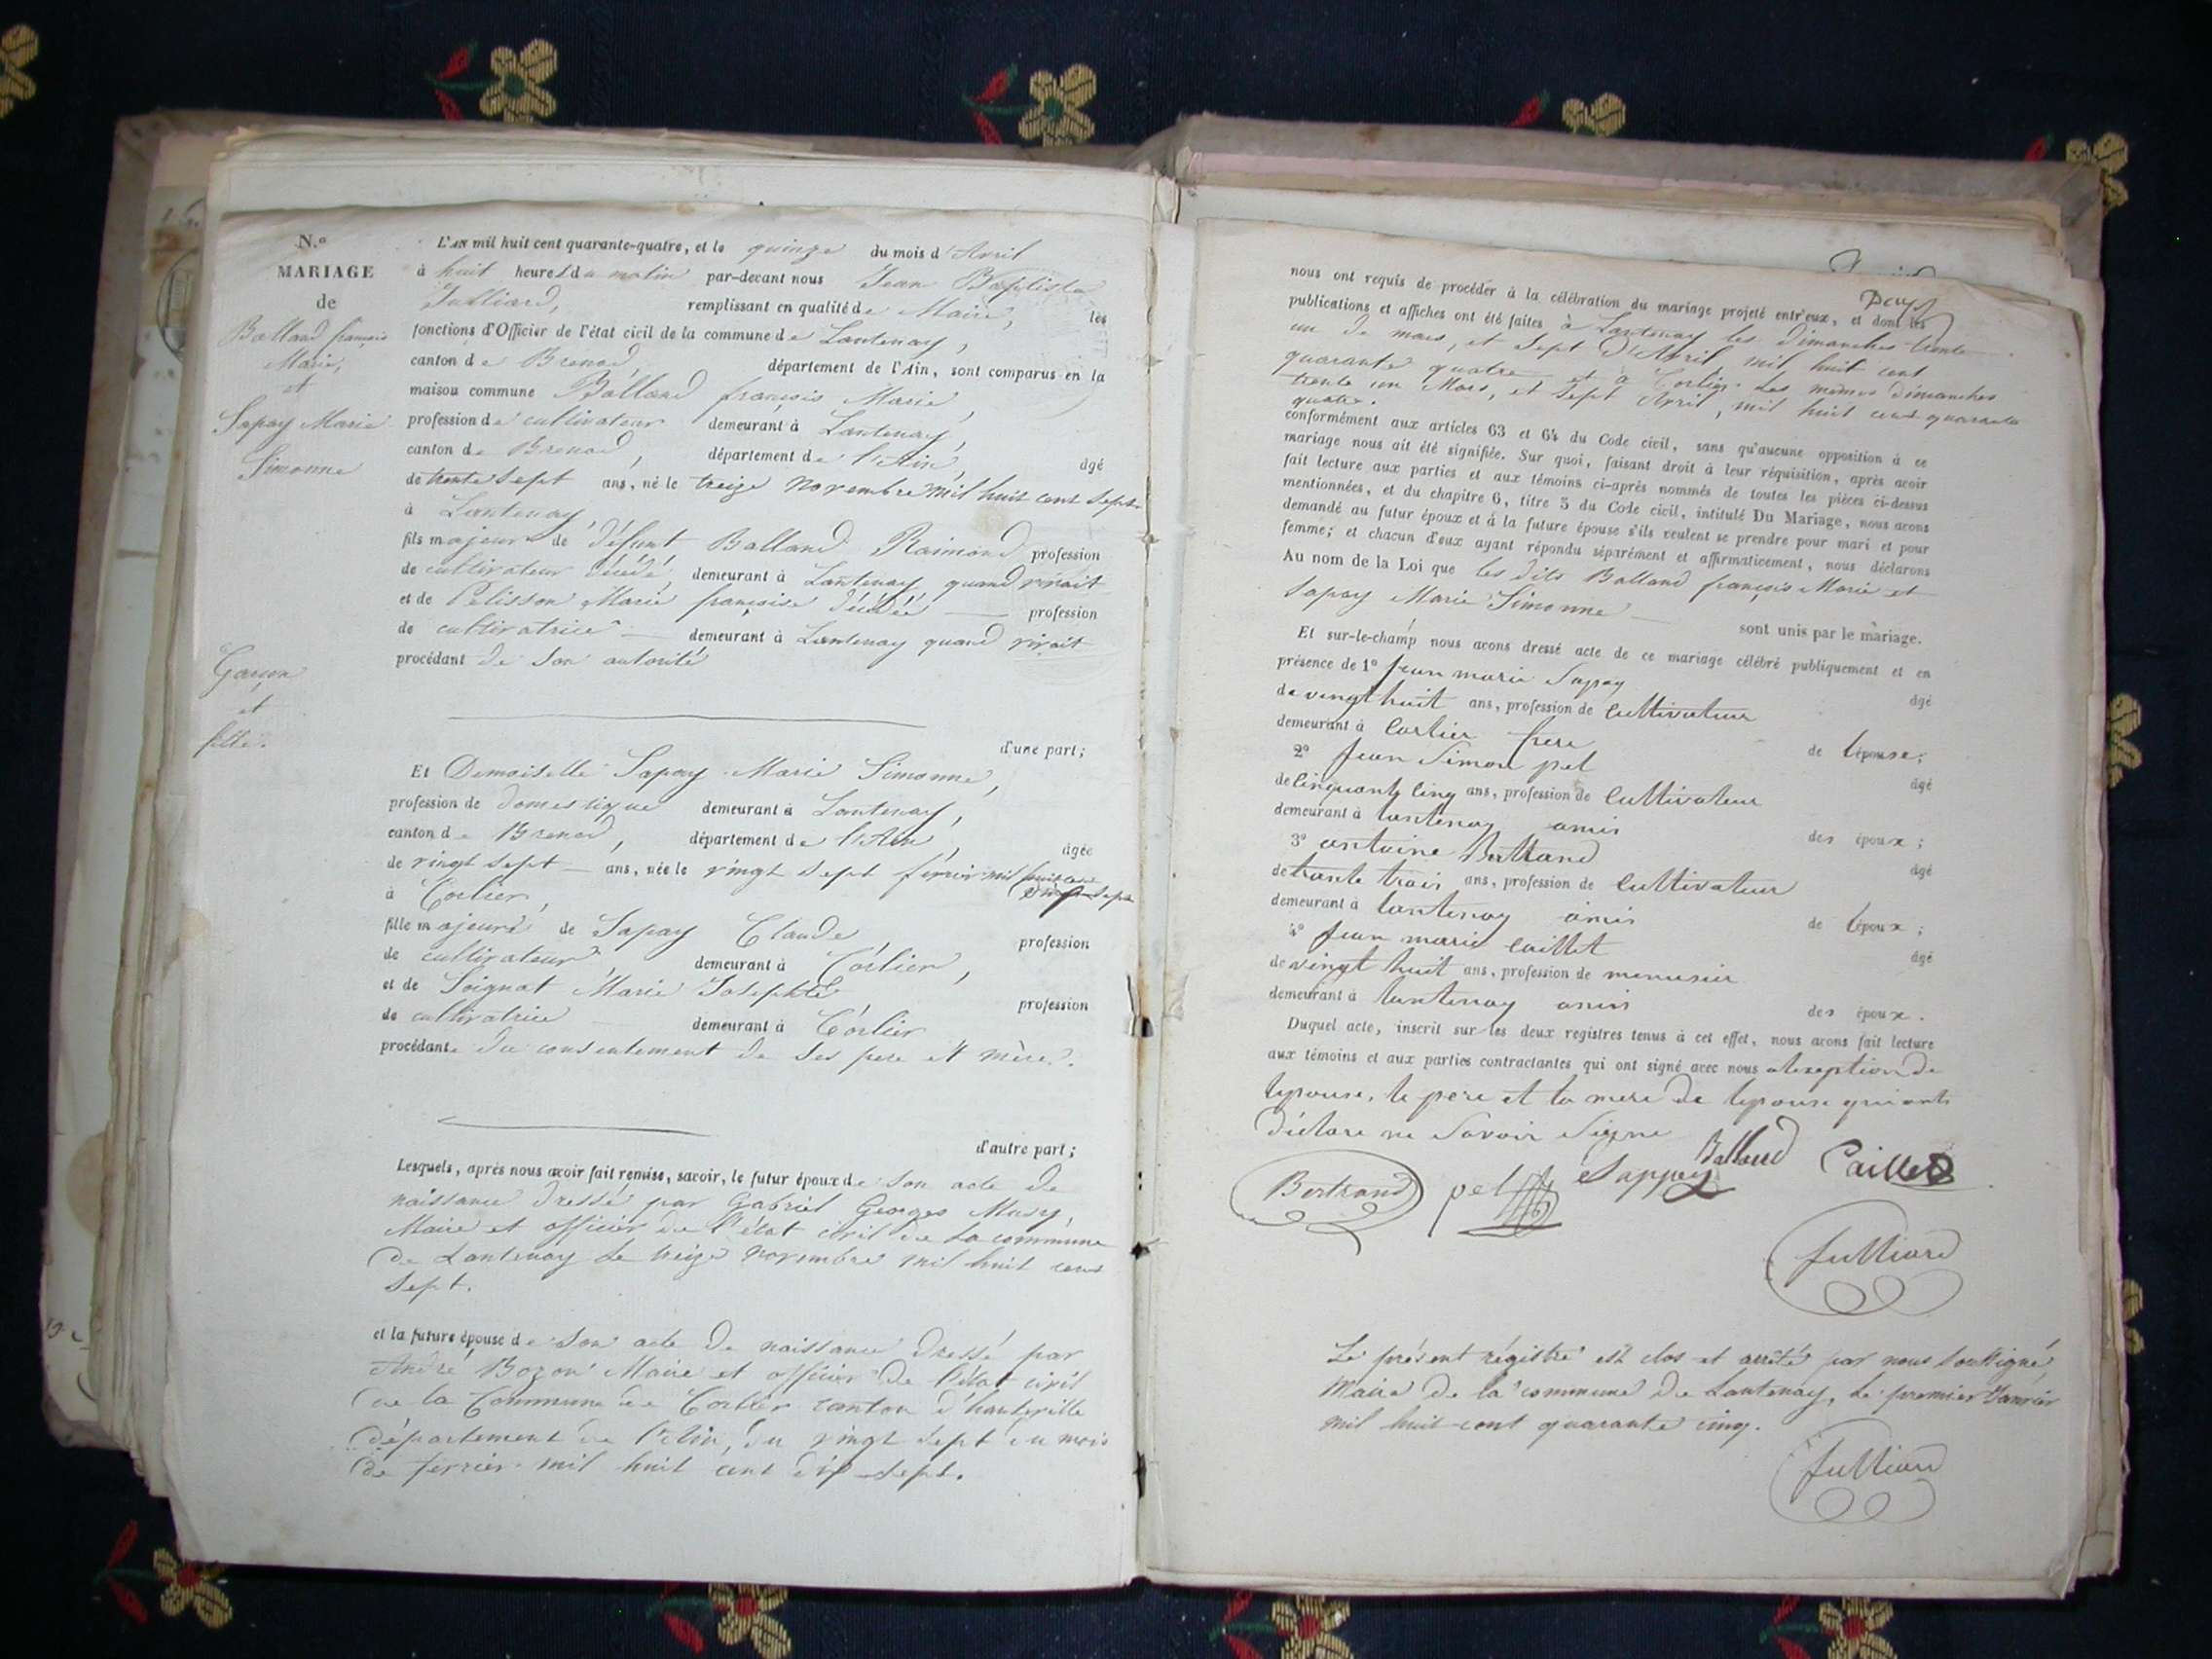 N.º
MARIAGE
de
Balland françois
Marie,
et
Sapay Marie
Simonne
Garçon
et
fille.
L'AN mil huit cent quarante-quatre, et le quinze du mois d'Avril
à huit heures du matin par-devant nous Jean Baptiste
Julliard, remplissant en qualité de Maire, les
fonctions d'Officier de l'état civil de la commune de Lantenay,
canton de Brenod, département de l'Ain, sont comparus en la
maison commune Balland françois Marie,
profession de cultivateur demeurant à Lantenay,
canton de Brenod, département de l'Ain, âgé
de trente sept ans, né le treize novembre mil huit cent sept
à Lantenay,
fils majeur de défunt Balland Raimond profession
de cultivateur décédé, demeurant à Lantenay quand vivait
et de Pelisson Marie françoise décédée profession
de cultivatrice demeurant à Lantenay quand vivait
procédant de son autorité
d'une part;
Et Demoiselle Sapay Marie Simonne,
profession de domestique demeurant à Lantenay,
canton de Brenod, département de l'Ain, âgée
de vingt sept ans, née le vingt sept février mil huit cent
dix sept
à Corlier,
fille majeure de Sapay Claude, profession
de cultivateur demeurant à Corlier,
et de Soignat Marie Josephte, profession
de cultivatrice demeurant à Corlier
procédante du consentement de ses pere et mère.
d'autre part;
Lesquels, après nous avoir fait remise, savoir, le futur époux de son acte de
naissance dressé par Gabriel Georges Musy,
Maire et officier de l'état civil de la commune
de Lantenay le treize novembre mil huit cent
sept.
et la future épouse de son acte de naissance dressé par
André Bozon Maire et officier de l'état civil
de la Commune de Corlier canton d'hauteville
département de l'Ain, du vingt sept du mois
de fevrier mil huit cent dix sept.
nous ont requis de procéder à la célébration du mariage projeté entr'eux, et dont les Deux
publications et affiches ont été faites à Lantenay les dimanches trente
un de mars, et sept d'Avril mil huit cent
quarante quatre et à Corlier les mêmes dimanches
trente un Mars, et sept Avril, mil huit cent quarante
quatre.
conformément aux articles 63 et 64 du Code civil, sans qu'aucune opposition à ce
mariage nous ait été signifiée. Sur quoi, faisant droit à leur réquisition, après avoir
fait lecture aux parties et aux témoins ci-après nommés de toutes les pièces ci-dessus
mentionnées, et du chapitre 6, titre 5 du Code civil, intitulé Du Mariage, nous avons
demandé au futur époux et à la future épouse s'ils veulent se prendre pour mari et pour
femme; et chacun d'eux ayant répondu séparément et affirmativement, nous déclarons
Au nom de la Loi que les dits Balland françois Marie et
Sapay Marie Simonne
sont unis par le mariage.
Et sur-le-champ nous avons dressé acte de ce mariage célébré publiquement et en
présence de 1º Jean marie Sapay âgé
de vingt huit ans, profession de cultivateur
demeurant à Corlier frere de lépouse;
2º Jean Simon pel âgé
de cinquante cinq ans, profession de cultivateur
demeurant à lantenay amis des époux;
3º antoine Bertrand âgé
de trante trois ans, profession de cultivateur
demeurant à lantenay amis de lépoux;
4º Jean marie Caillet âgé
de vingt huit ans, profession de menusier
demeurant à lantenay amis des époux.
Duquel acte, inscrit sur les deux registres tenus à cet effet, nous avons fait lecture
aux témoins et aux parties contractantes qui ont signé avec nous alexeption de
lepouse, le pere et la mere de lepouse qui ont
déclare ne savoir signe
Bertrand pel Sappey Balland Caillet
Julliard
Le présent régistre est clos et arrêté par nous soussigné,
Maire de la commune de Lantenay, le premier Janvier
mil huit-cent quarante cinq.
Julliard